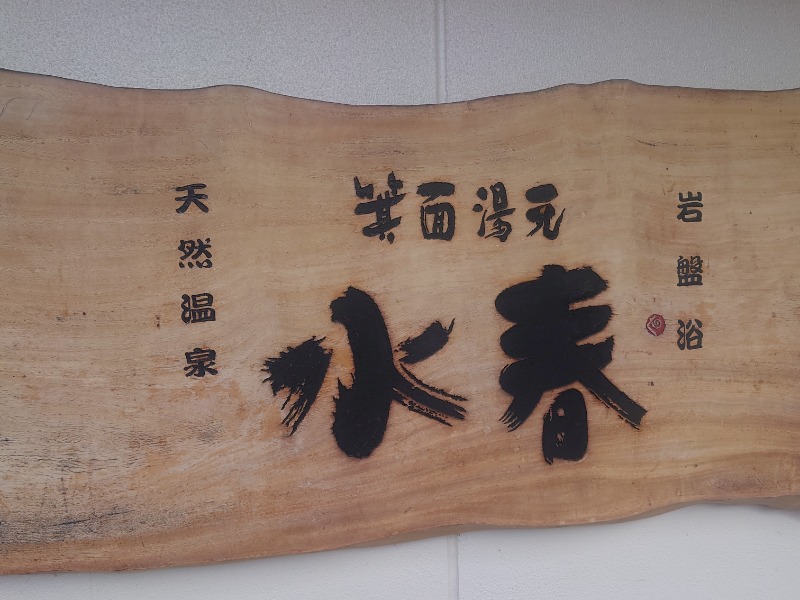 箕面湯元
水春
天然温泉
岩盤浴